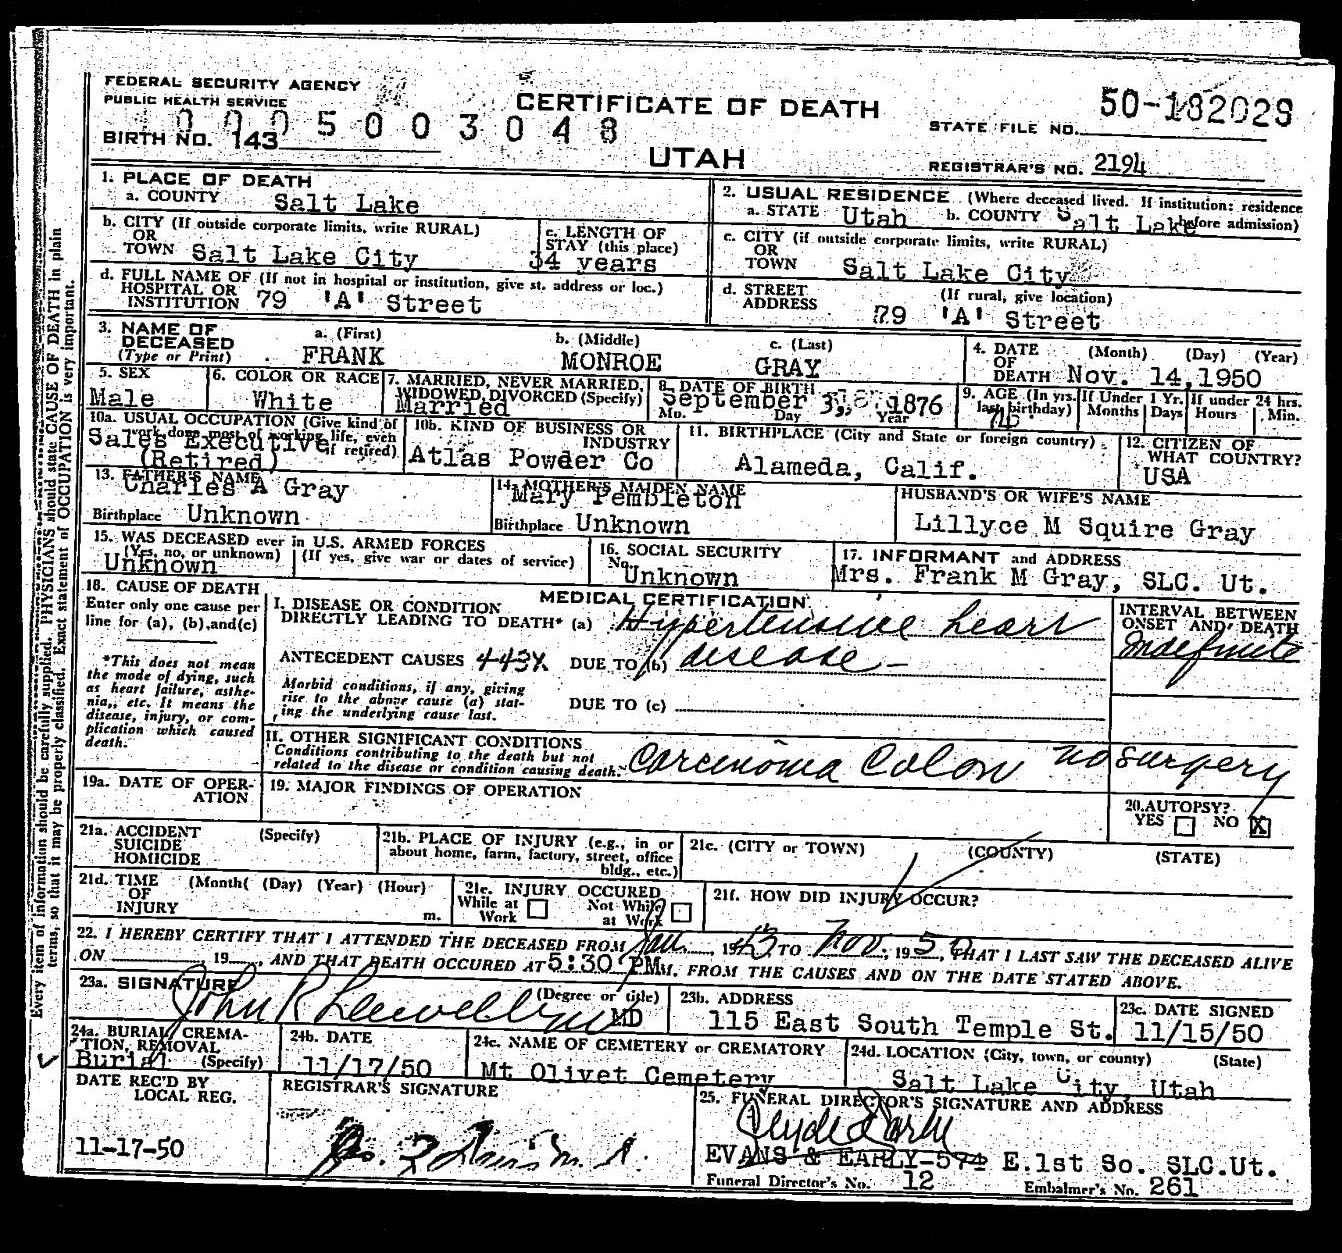 FEDERAL SECURITY AGENCY
PUBLIC HEALTH SERVICE
CERTIFICATE OF DEATH
50-182029
STATE FILE NO.
0005003048
BIRTH NO. 143
UTAH
REGISTRAR'S NO. 2194
1. PLACE OF DEATH
a. COUNTY Salt Lake
2. USUAL RESIDENCE (Where deceased lived. If institution: residence before admission)
a. STATE Utah b. COUNTY Salt Lake
b. CITY (If outside corporate limits, write RURAL)
OR
TOWN Salt Lake City
c. LENGTH OF
STAY (this place)
34 years
c. CITY (if outside corporate limits, write RURAL)
OR
TOWN Salt Lake City
d. FULL NAME OF (If not in hospital or institution, give st. address or loc.)
HOSPITAL OR
INSTITUTION 79 'A' Street
d. STREET (If rural, give location)
ADDRESS 79 'A' Street
3. NAME OF
DECEASED
(Type or Print)
a. (First)
FRANK
b. (Middle)
MONROE
c. (Last)
GRAY
4. DATE (Month) (Day) (Year)
OF
DEATH Nov. 14,1950
5. SEX
Male
6. COLOR OR RACE
White
7. MARRIED, NEVER MARRIED,
WIDOWED, DIVORCED (Specify)
Married
8. DATE OF BIRTH
September 3, 1876
Mo. Day Year
9. AGE (In yrs. last birthday)
74
If Under 1 Yr.
Months Days
If under 24 hrs.
Hours Min.
10a. USUAL OCCUPATION (Give kind of
work done most of working life, even if retired)
Sales Executive
(Retired)
10b. KIND OF BUSINESS OR
INDUSTRY
Atlas Powder Co
11. BIRTHPLACE (City and State or foreign country)
Alameda, Calif.
12. CITIZEN OF
WHAT COUNTRY?
USA
13. FATHER'S NAME
Charles A Gray
Birthplace Unknown
14. MOTHER'S MAIDEN NAME
Mary Pembleton
Birthplace Unknown
HUSBAND'S OR WIFE'S NAME
Lillyce M Squire Gray
15. WAS DECEASED ever in U.S. ARMED FORCES
(Yes, no, or unknown) (If yes, give war or dates of service)
Unknown
16. SOCIAL SECURITY
No.
Unknown
17. INFORMANT and ADDRESS
Mrs. Frank M Gray, SLC. Ut.
18. CAUSE OF DEATH
Enter only one cause per
line for (a), (b),and(c)
*This does not mean
the mode of dying, such
as heart failure, asthe-
nia,, etc. It means the
disease, injury, or com-
plication which caused
death.
MEDICAL CERTIFICATION
I. DISEASE OR CONDITION
DIRECTLY LEADING TO DEATH* (a) Hypertensive heart
ANTECEDENT CAUSES 443X DUE TO (b) disease -
Morbid conditions, if any, giving
rise to the above cause (a) stat-
ing the underlying cause last.
DUE TO (c)
INTERVAL BETWEEN
ONSET AND DEATH
Indefinite
II. OTHER SIGNIFICANT CONDITIONS
Conditions contributing to the death but not
related to the disease or condition causing death.
Carcinoma Colon no surgery
19a. DATE OF OPER-
ATION
19. MAJOR FINDINGS OF OPERATION
20. AUTOPSY?
YES NO X
21a. ACCIDENT (Specify)
SUICIDE
HOMICIDE
21b. PLACE OF INJURY (e.g., in or
about home, farm, factory, street, office
bldg., etc.)
21c. (CITY or TOWN) (COUNTY) (STATE)
21d. TIME (Month( (Day) (Year) (Hour)
OF
INJURY m.
21e. INJURY OCCURED
While at Work Not While at Work
21f. HOW DID INJURY OCCUR?
22. I HEREBY CERTIFY THAT I ATTENDED THE DECEASED FROM Jan, 1943 TO Nov, 1950, THAT I LAST SAW THE DECEASED ALIVE
ON , 19 , AND THAT DEATH OCCURED AT 5:30 PM m. FROM THE CAUSES AND ON THE DATE STATED ABOVE.
23a. SIGNATURE (Degree or title)
John R Llewellyn MD MD
23b. ADDRESS
115 East South Temple St.
23c. DATE SIGNED
11/15/50
24a. BURIAL, CREMA-
TION, REMOVAL
Burial (Specify)
24b. DATE
11/17/50
24c. NAME OF CEMETERY or CREMATORY
Mt Olivet Cemetery
24d. LOCATION (City, town, or county) (State)
Salt Lake City, Utah
DATE REC'D BY
LOCAL REG.
11-17-50
REGISTRAR'S SIGNATURE
25. FUNERAL DIRECTOR'S SIGNATURE AND ADDRESS
EVANS & EARLY-574 E.1st So. SLC.Ut.
Funeral Director's No. 12 Embalmer's No. 261
Every item of information should be carefully supplied. PHYSICIANS should state CAUSE OF DEATH in plain
terms, so that it may be properly classified. Exact statement of OCCUPATION is very important.